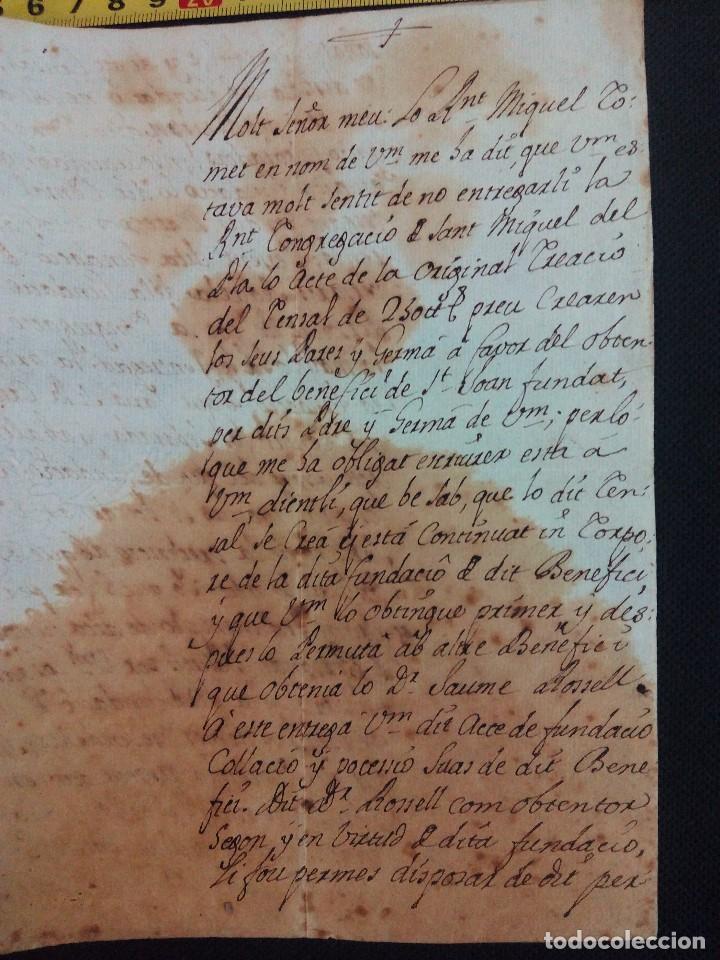 6 7 8 9 20
Molt Señor meu: Lo Rnt Miquel Co-
met en nom de Vm me ha dit, que Vm es-
tava molt sentit de no entregarli la
Rnt Congregació d Sant Miquel del
Pla lo Acte de la original Creació
del Censal de preu Crearen
los seus Pares y Germá á favor del obten-
tor del benefici de St. Joan fundat,
per dits Pdre y Germá de Vm; per ló-
que me ha obligat escriurer esta á
Vm dientli, que be sab, que lo dit Cen-
sal se Creá y está Continuat in Corpo-
re de la dita fundació d dit Benefici
y que Vm lo obtingue primer y des-
pues lo Permutá ab altre Benefici
que obtenia lo Dr Jaume Rossell
A este entregá Vm dit Acte de fundació
Collació y pocessió suas de dit Bene
fici. Dit Dr Rossell com obtentor
Segon y en virtud d dita fundació,
li fou permes disposar de dit per
todocoleccion.net